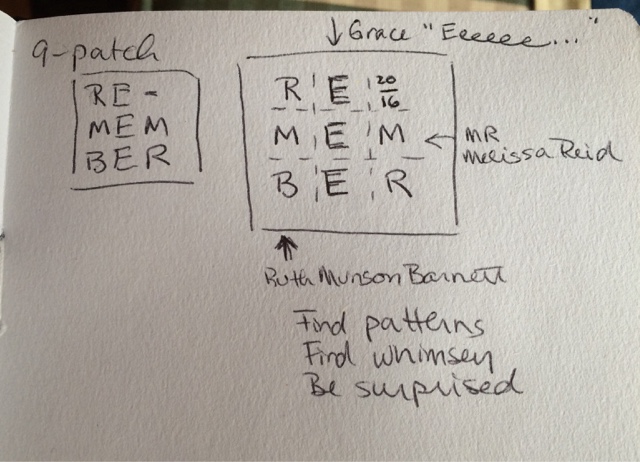 9-patch
RE-
MEM
BER
↓ Grace "Eeeeee..."
R E 20/16
M E M
B E R
← MR
Melissa Reid
↑
Ruth Munson Barnett
Find patterns
Find whimsey
Be surprised